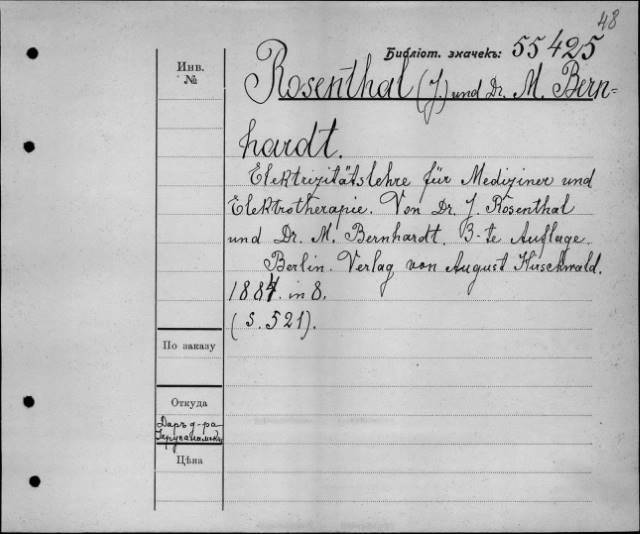 48
Библіот. значекъ: 55425
Инв.
№
Rosenthal (J.) und Dr. M. Bern-
hardt.
Elektrizitätslehre für Mediziner und
Elektrotherapie. Von Dr. J. Rosenthal
und Dr. M. Bernhardt. 3-te Auflage.
Berlin. Verlag von August Hirschwald.
1884. in 8.
(S. 521).
По заказу
Откуда
Даръ д-ра
Цѣна